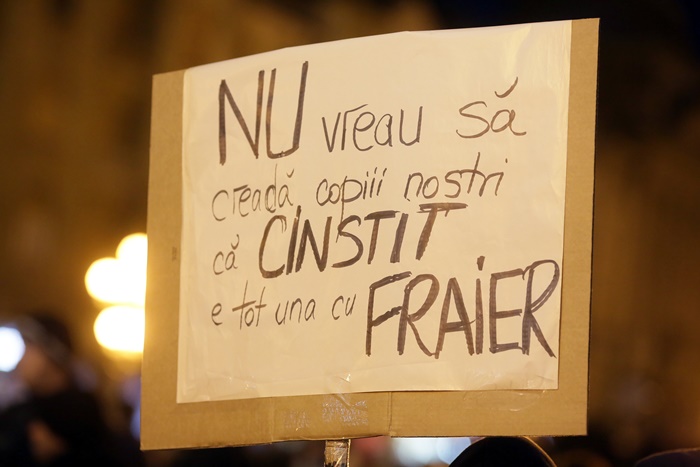 NU vreau să
creadă copiii noștri
că CINSTIT
e tot una cu FRAiER